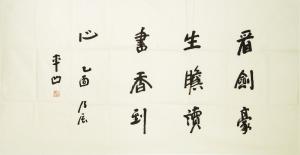 看劍豪
生膽讀
書香到
心 乙酉 乃辰
平凹